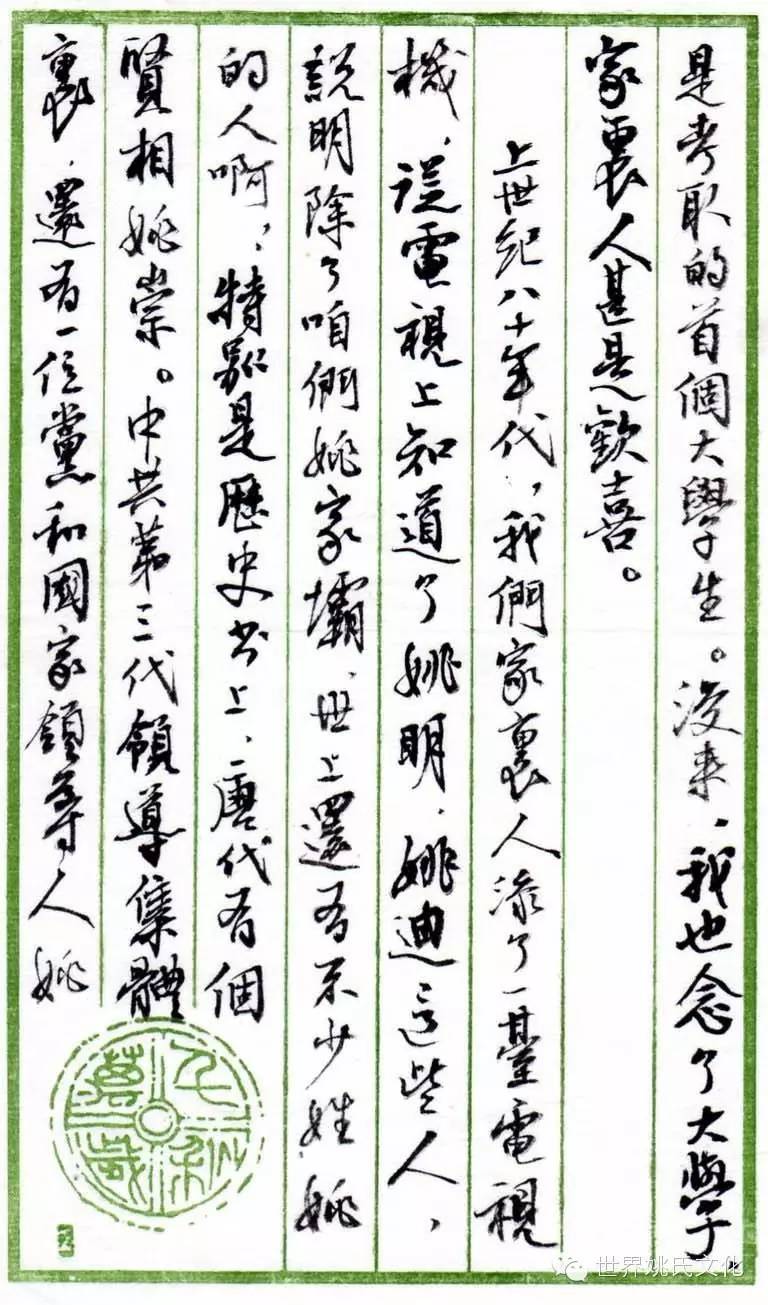 是考取的首個大學生。後来，我也念了大學，
家裏人甚是歡喜。
上世紀八十年代，我們家裏人添了一臺電視
機，從電視上知道了姚明、姚迪這些人，
説明除了咱們姚家壩，世上還有不少姓姚
的人啊；特别是歷史书上，唐代有個
賢相姚崇。中共第三代領導集體
裏，還有一位黨和國家領導人姚
千秋
萬歲
世界姚氏文化